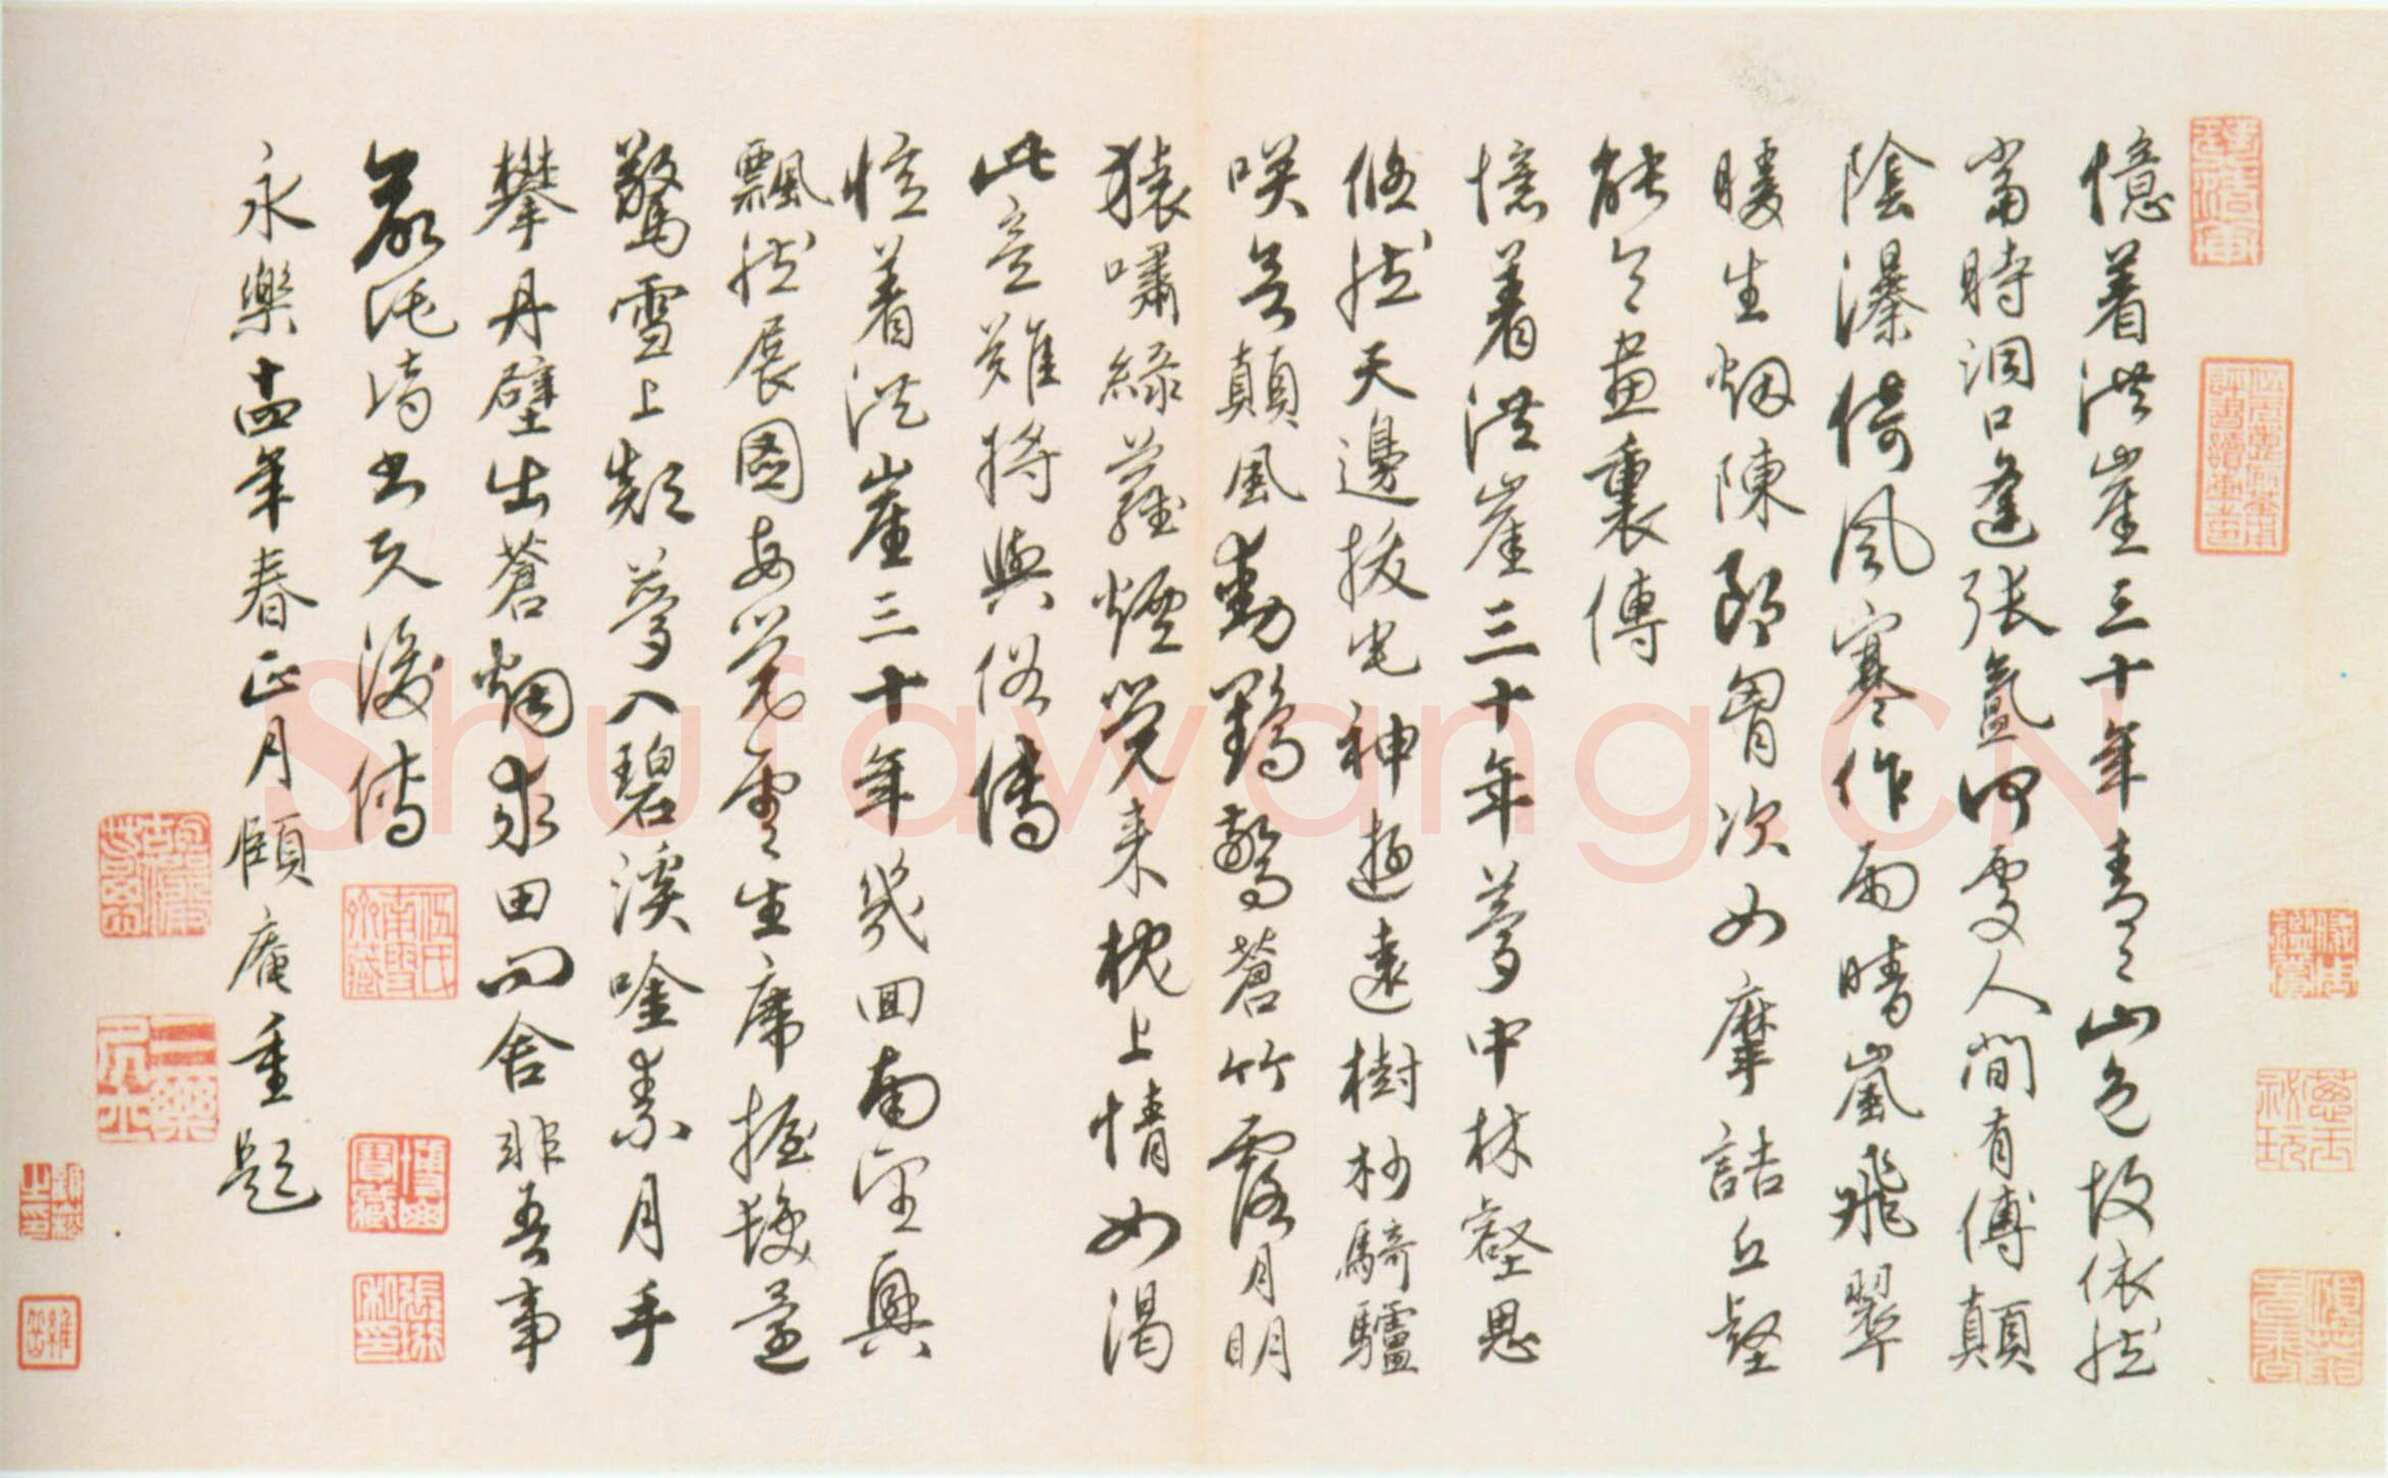 憶着洪崖三十年青〻山色故依然
當時洞口逢張氳何處人間有傅顛
陰瀑倚風寒作雨晴嵐飛翠
暖生烟陳郎胷次如摩詰丘壑
能令畫裏傳
憶着洪崖三十年夢中林壑思
翛然天邊拔宅神遊遠樹杪騎驢
咲顛風動鶴驚蒼竹露月明
猿嘯綠蘿煙覺来枕上情如渴
此意難將與俗傳
憶着洪崖三十年幾回南望興
飄然展圖每覺雲生席握髮還
驚雪上顛夢入碧溪唫素月手
攀丹壁出蒼烟求田問舍非吾事
久後傳
永樂十四年春正月頤庵重題
Shufawang.CN